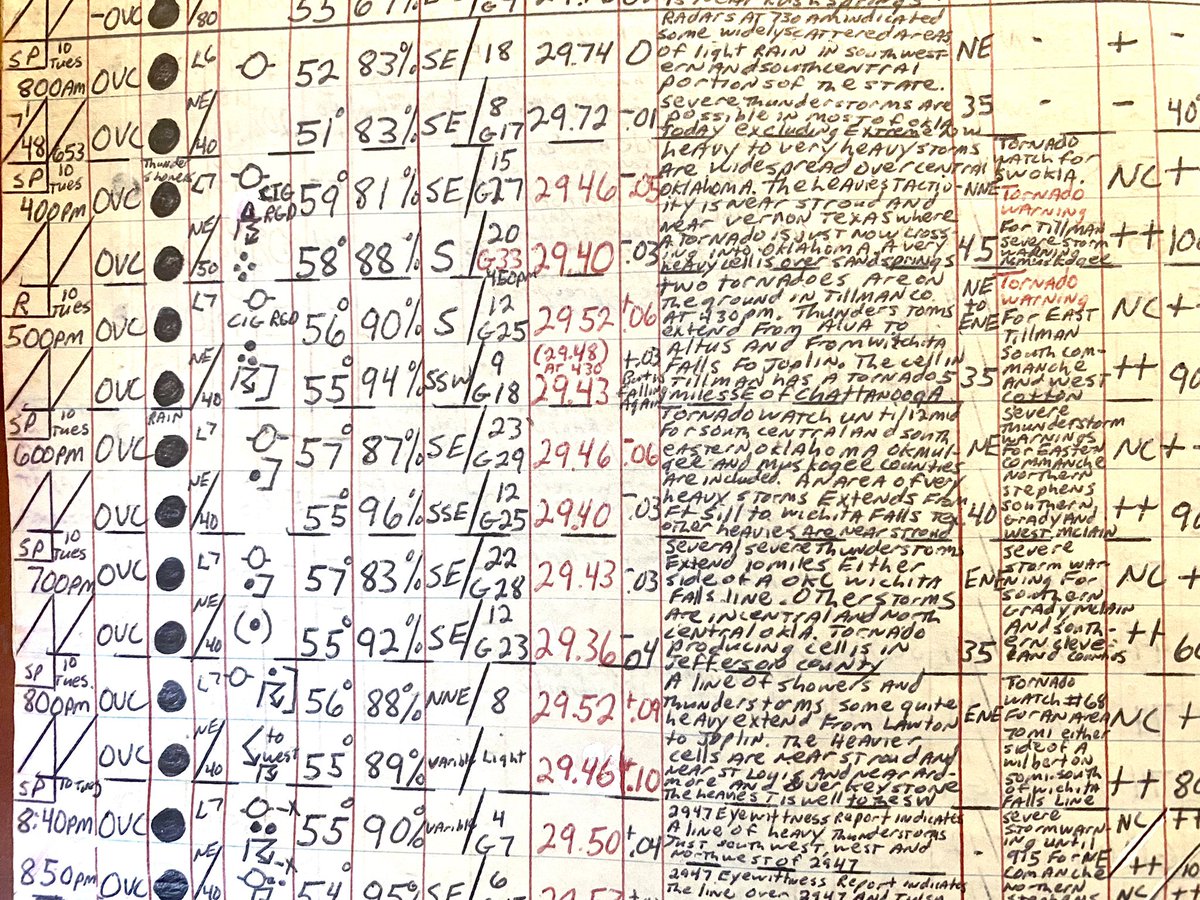 -OVC /80 55
SP 10 Tues OVC L6 52 83% SE/18 29.74 0
800AM
7' 48 653 OVC NE/40 51° 83% SE/8 G17 29.72 -.01
RADARS AT 730 Am indicated
some widely scattered areas
of light RAIN in southwest-
ern And southcentral
portions of the state.
severe thunderstorms are
possible in most of okla
Today excluding Extreme
NE - + -
35 - - 40
SP 10 Tues OVC Thunder showers L7 CIG RGD 59° 81% SE/15 G27 29.46 -.05
400pm
OVC NE/50 58° 88% S/20 G33 450pm 29.40 -.03
heavy to very heavy storms
are widespread over central
Oklahoma. The heaviest activ-
ity is near stroud and
near vernon Texas where
A tornado is just now cross-
ing into oklahoma. A very
heavy cell is over sandsprings
NNE
45
TORNADO
watch for
SW OKLA.
TORNADO
WARNING
For Tillman
severe storm
WARNING
muskogee
NC +
++ 10
R 10 Tues OVC L7 CIG RGD 56° 90% S/12 G25 29.52 +.06
500pm
OVC NE/40 55° 94% SSW/9 G18 (29.48) AT 430 29.43 +.03 But is falling again
two tornadoes are on
the ground in Tillman co.
AT 430pm. Thunderstorms
extend from Alva to
Altus and from Wichita
Falls to Joplin. The cell in
Tillman has A tornado 5
miles SE of Chattanooga
NE to ENE
35
TORNADO
WARNING
For EAST
Tillman
South com-
manche
And west
cotton
NC +
++ 90
SP 10 Tues OVC RAIN L7 57° 87% SE/23 G29 29.46 -.06
600pm
OVC NE/40 55° 96% SSE/12 G25 29.40 -.03
Tornado watch until 12 mid
For south central and south
eastern oklahoma okmul-
gee and muskogee counties
are included. An area of very
heavy storms Extends From
Ft Sill to Wichita Falls Tex
other heavies are near stroud
NE
40
severe
Thunderstorm
WARNINGS
For Eastern
Commanche
northern
stephens
southern
Grady and
west mclain
NC +
++ 9
SP 10 Tues OVC L7 57° 83% SE/22 G28 29.43 -.03
700pm
OVC NE/40 55° 92% SE/12 G23 29.36 -.04
Several severe thunderstorms
Extend 10 miles Either
side of A OKC Wichita
Falls line. Other storms
Are in central and north
central okla. Tornado
producing cell is in
Jefferson County
ENE
35
severe
storm war-
ning for
southern
Grady mclain
And south-
ern cleve-
land counties
NC +
++ 60
SP 10 Tues. OVC L7 56° 88% NNE/8 29.52 +.09
800pm
OVC NE/40 to west 55° 89% variable/Light 29.46 +.10
A line of showers and
Thunderstorms, some quite
heavy extend from Lawton
to Joplin. The heavier
cells are near stroud and
near St Louis and near Ard-
more and over Keystone
The heaviest is well to the SW
ENE
TORNADO
WATCH #68
For An Area
70mi either
side of A
wilberton
50mi. south
of wichita
Falls Line
NC +
++ 80
SP 10 Tues OVC L7 55° 90% variable/4 G7 29.50 +.04
8:40pm
2947 Eyewittness Report indicates
A line of heavy thunderstorms
Just southwest, west and
Northwest of 2947
-
severe
storm warn-
ing until
915 for NE
comanche
northern
NC ++
++ 10
850pm OVC NE/40 54° 95% SE/6
2947 Eyewittness Report indicates
The line over 2947 and Tulsa
NC